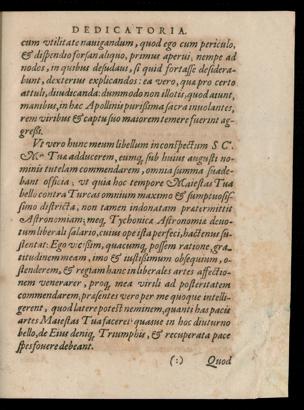 DEDICATORIA.
cum vtilitate nauigandum, quod ego cum periculo,
& dispendio forsan aliquo, primus aperui, nempe ad
nodos, in quibus desudaui, si quid fortasse desidera-
bunt, dexterius explicandos: ea vero, qua pro certo
attuli, diiudicanda: dummodo non illotis, quod aiunt,
manibus, in hac Apollinis purissima sacra inuolantes,
rem viribus & captu suo maiorem temere fuerint ag-
gressi.
Vt vero hunc meum libellum in conspectum S C.
Mtis Tua adducerem, eumq, sub huius augusti no-
minis tutelam commendarem, omnia summa suade-
bant officia, vt quia hoc tempore Maiestas Tua
bello contra Turcas omnium maximo & sumptuosis-
simo districta, non tamen indonatam pratermittit
Astronomiam; meq, Tychonica Astronomia deuo-
tum liberali salario, cuius ope ista perfeci, hactenus su-
stentat: Ego vicissim, quacumq, possem ratione, gra-
titudinem meam, imo & iustissimum obsequium, o-
stenderem, & regiam hanc in liberales artes affectio-
nem venerarer, proq, mea virili ad posteritatem
commendarem, præsentes vero per me quoque intelli-
gerent, quod latere potest neminem, quanti has pacis
artes Maiestas Tua faceret: quasue in hoc diuturno
bello, de Eius deniq, Triumphis, & recuperata pace
spes fouere debeant.
(:) Quod